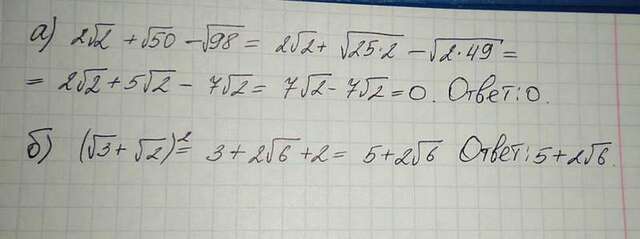 а) 2√2 + √50 - √98 = 2√2 + √25·2 - √2·49 =
= 2√2 + 5√2 - 7√2 = 7√2 - 7√2 = 0. Ответ: 0.
б) (√3 + √2)² = 3 + 2√6 + 2 = 5 + 2√6 Ответ: 5 + 2√6.